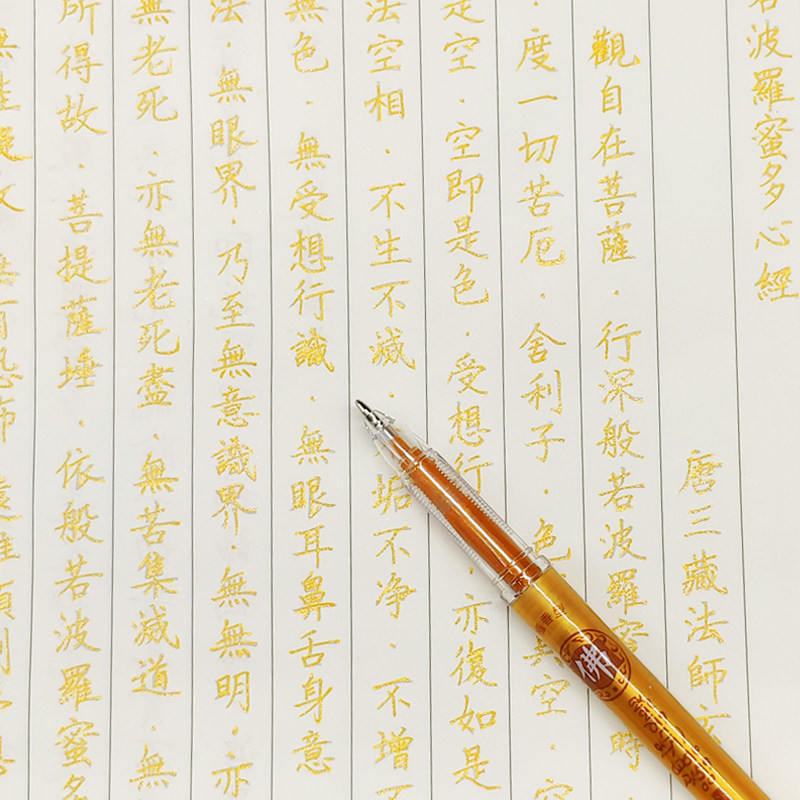 波羅蜜多心經
唐三藏法師玄
觀自在菩薩．行深般若波羅蜜時
．度一切苦厄．舍利子．色空．空
是空．空即是色．受想行亦復如是
法空相．不生不滅．垢不净．不增不
無色．無受想行識．無眼耳鼻舌身意
法．無眼界．乃至無意識界．無無明．亦
無老死．亦無老死盡．無苦集滅道．無
所得故．菩提薩埵．依般若波羅蜜多
礙故
恐怖
佛